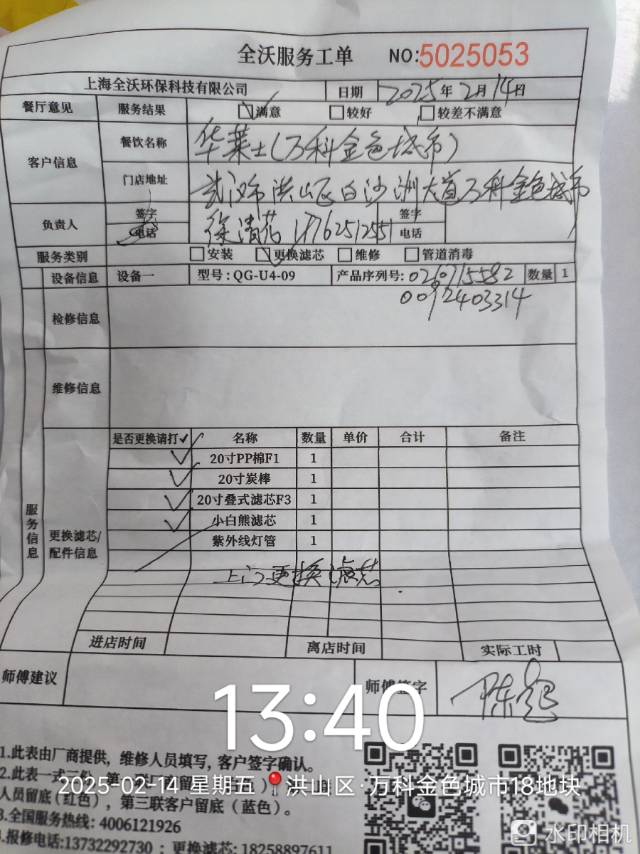 全沃服务工单 NO:5025053
上海全沃环保科技有限公司 日期 2025年2月14日
餐厅意见 服务结果 满意 较好 较差不满意
客户信息 餐饮名称 华莱士(万科金色城市)
门店地址 武汉市洪山区白沙洲大道万科金色城市
负责人 签字 签字
电话 徐清芯 电话
服务类别 安装 更换滤芯 维修 管道消毒
设备信息 设备一 型号:QG-U4-09 产品序列号:0260715582 数量 1
0092403314
检修信息
维修信息
服务信息
更换滤芯/配件信息
是否更换请打✓ 名称 数量 单价 合计 备注
✓ 20寸PP棉F1 1
✓ 20寸炭棒 1
✓ 20寸叠式滤芯F3 1
✓ 小白熊滤芯 1
紫外线灯管 1
上门更换滤芯
进店时间 离店时间 实际工时
师傅建议 师傅签字
13:40
2025-02-14 星期五 洪山区·万科金色城市18地块
1.此表由厂商提供，维修人员填写，客户签字确认。
2.此表一式
人员留底(红色)，第三联客户留底（蓝色）。
3.全国服务热线: 4006121926
报修电话:13732292730 ; 更换滤芯: 18258897611
水印相机